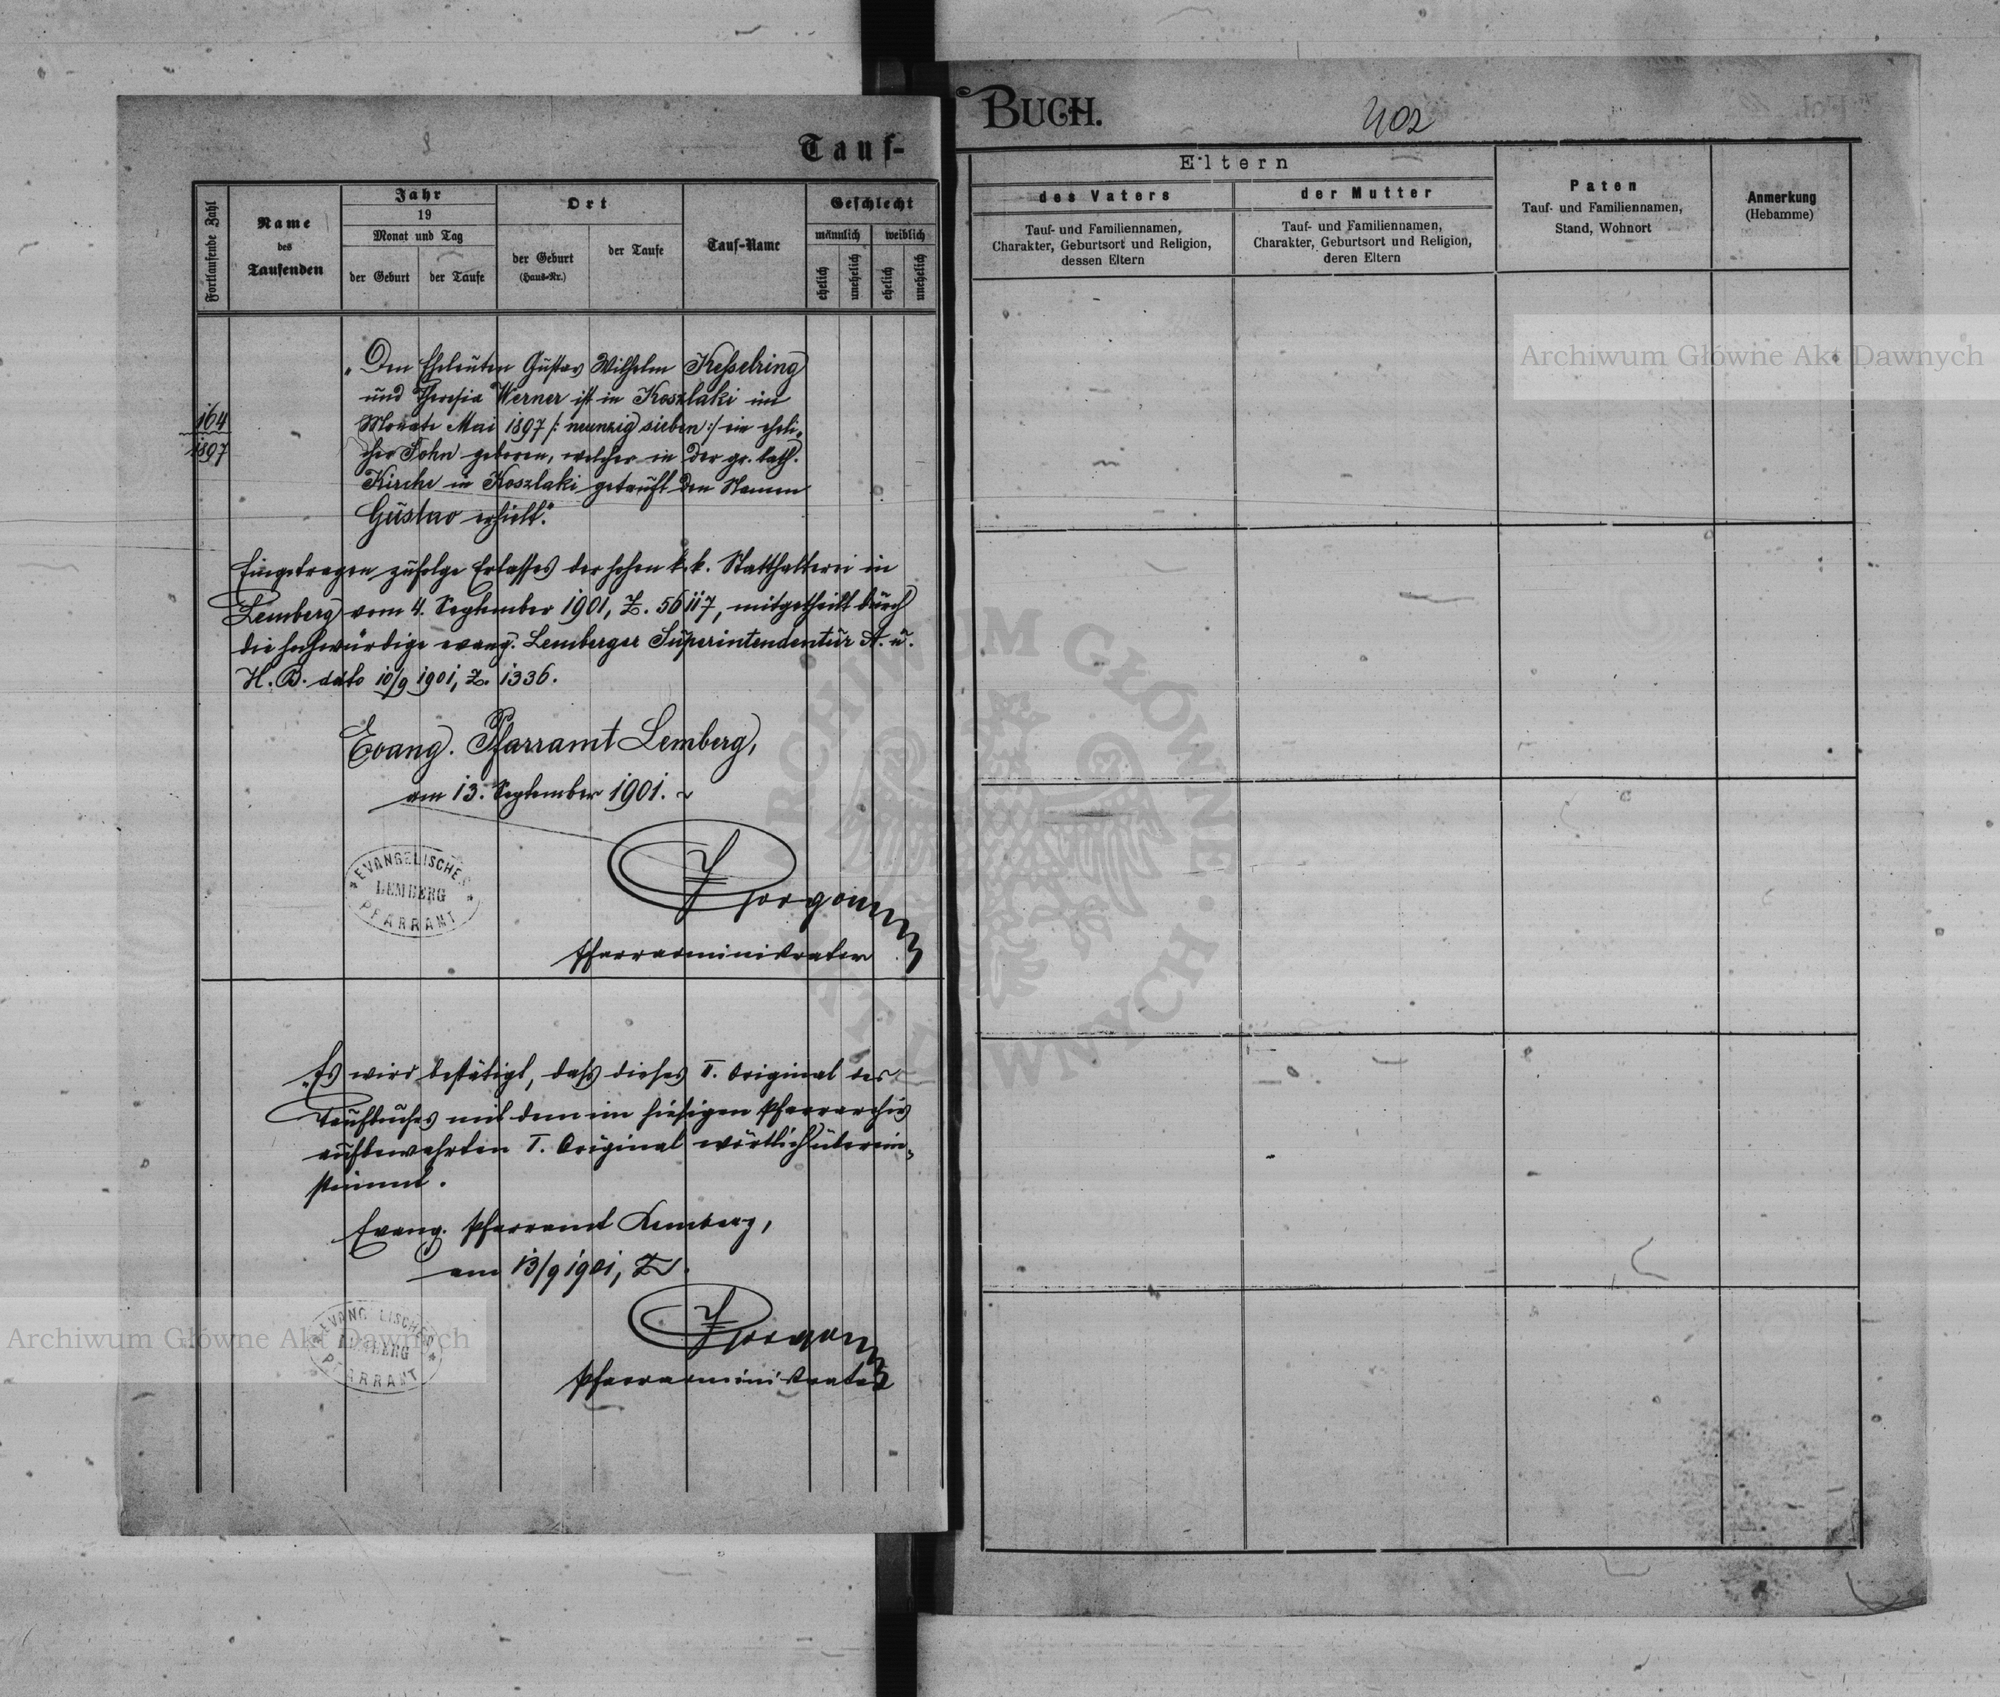 Tauf-
Fortlaufende Zahl
Name
des
Taufenden
Jahr
19
Monat und Tag
der Geburt
der Taufe
Ort
der Geburt
(Haus-Nr.)
der Taufe
Tauf-Name
Geschlecht
männlich
weiblich
ehelich
unehelich
ehelich
unehelich
164
1897
„Den Eheleuten Gustav Wilhelm Keßelring
und Theresia Werner ist in Koszlaki im
Monate Mai 1897 /: neunzig sieben :/ ein eheli-
cher Sohn geboren, welcher in der gr. kath.
Kirche in Koszlaki getauft den Namen
Gustav erhielt."
Eingetragen zufolge Erlasses der hohen k. k. Statthalterei in
Lemberg vom 4. September 1901, Z. 56117, mitgetheilt durch
die hochwürdige evang. Lemberger Superintendentur A. u.
H. B. dato 10/9 1901, Z. 1336.
Evang. Pfarramt Lemberg,
am 13. September 1901.
EVANGELISCHES
LEMBERG
PFARRAMT
Pfarradministrator
„Es wird bestätigt, daß dieses II. Original des
Taufbuches mit dem im hiesigen Pfarrarchiv
aufbewahrten I. Original wörtlich überein-
stimmt.
Evang. Pfarramt Lemberg,
am 13/9 1901,
EVANGELISCHES
LEMBERG
PFARRAMT
Pfarradministrator
BUCH.
402
Eltern
des Vaters
Tauf- und Familiennamen,
Charakter, Geburtsort und Religion,
dessen Eltern
der Mutter
Tauf- und Familiennamen,
Charakter, Geburtsort und Religion,
deren Eltern
Paten
Tauf- und Familiennamen,
Stand, Wohnort
Anmerkung
(Hebamme)
Archiwum Główne Akt Dawnych
ARCHIWUM GŁÓWNE • AKT DAWNYCH
Archiwum Główne Akt Dawnych